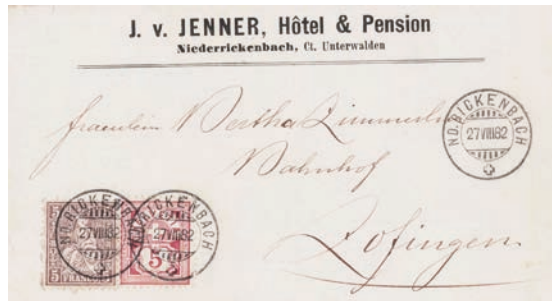 J. v. JENNER, Hôtel & Pension
Niederrickenbach, Ct. Unterwalden
Fraeulein Bertha Zimmerlin
Bahnhof
Zofingen
ND. RICKENBACH
27 VIII 82
ND. RICKENBACH
27 VIII 82
ND. RICKENBACH
27 VIII 82
5
5